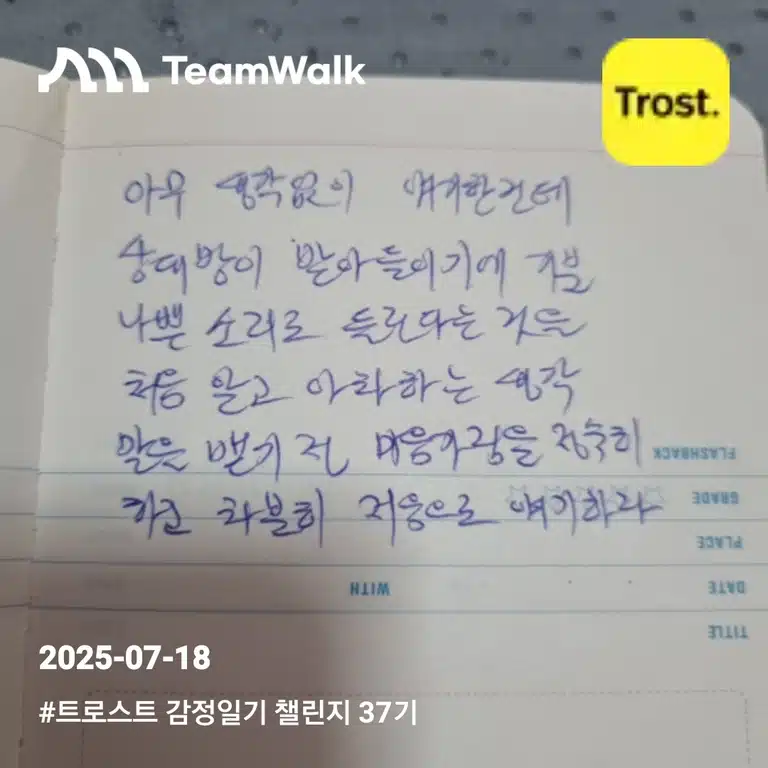 TeamWalk
Trost.
아무 생각없이 얘기한건데
상대방이 받아들이기에 기분
나쁜 소리로 들린다는 것을
처음 알고 아차하는 생각
말은 뱉기 전 마음가짐을 정숙히
하고 차분히 저음으로 얘기하라
FLASHBACK
GRADE
PLACE
DATE
WITH
TITLE
2025-07-18
#트로스트 감정일기 챌린지 37기